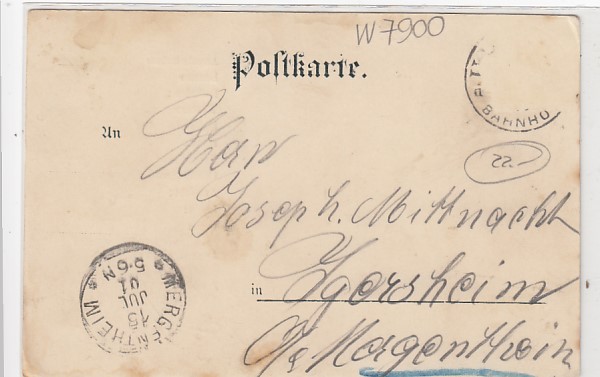 W7900
Postkarte.
BAHNHO
22.-
An Herrn
Joseph. Mittnacht
in Igersheim
Mergentheim
MERGENTHEIM
15
JUL
01
5-6N